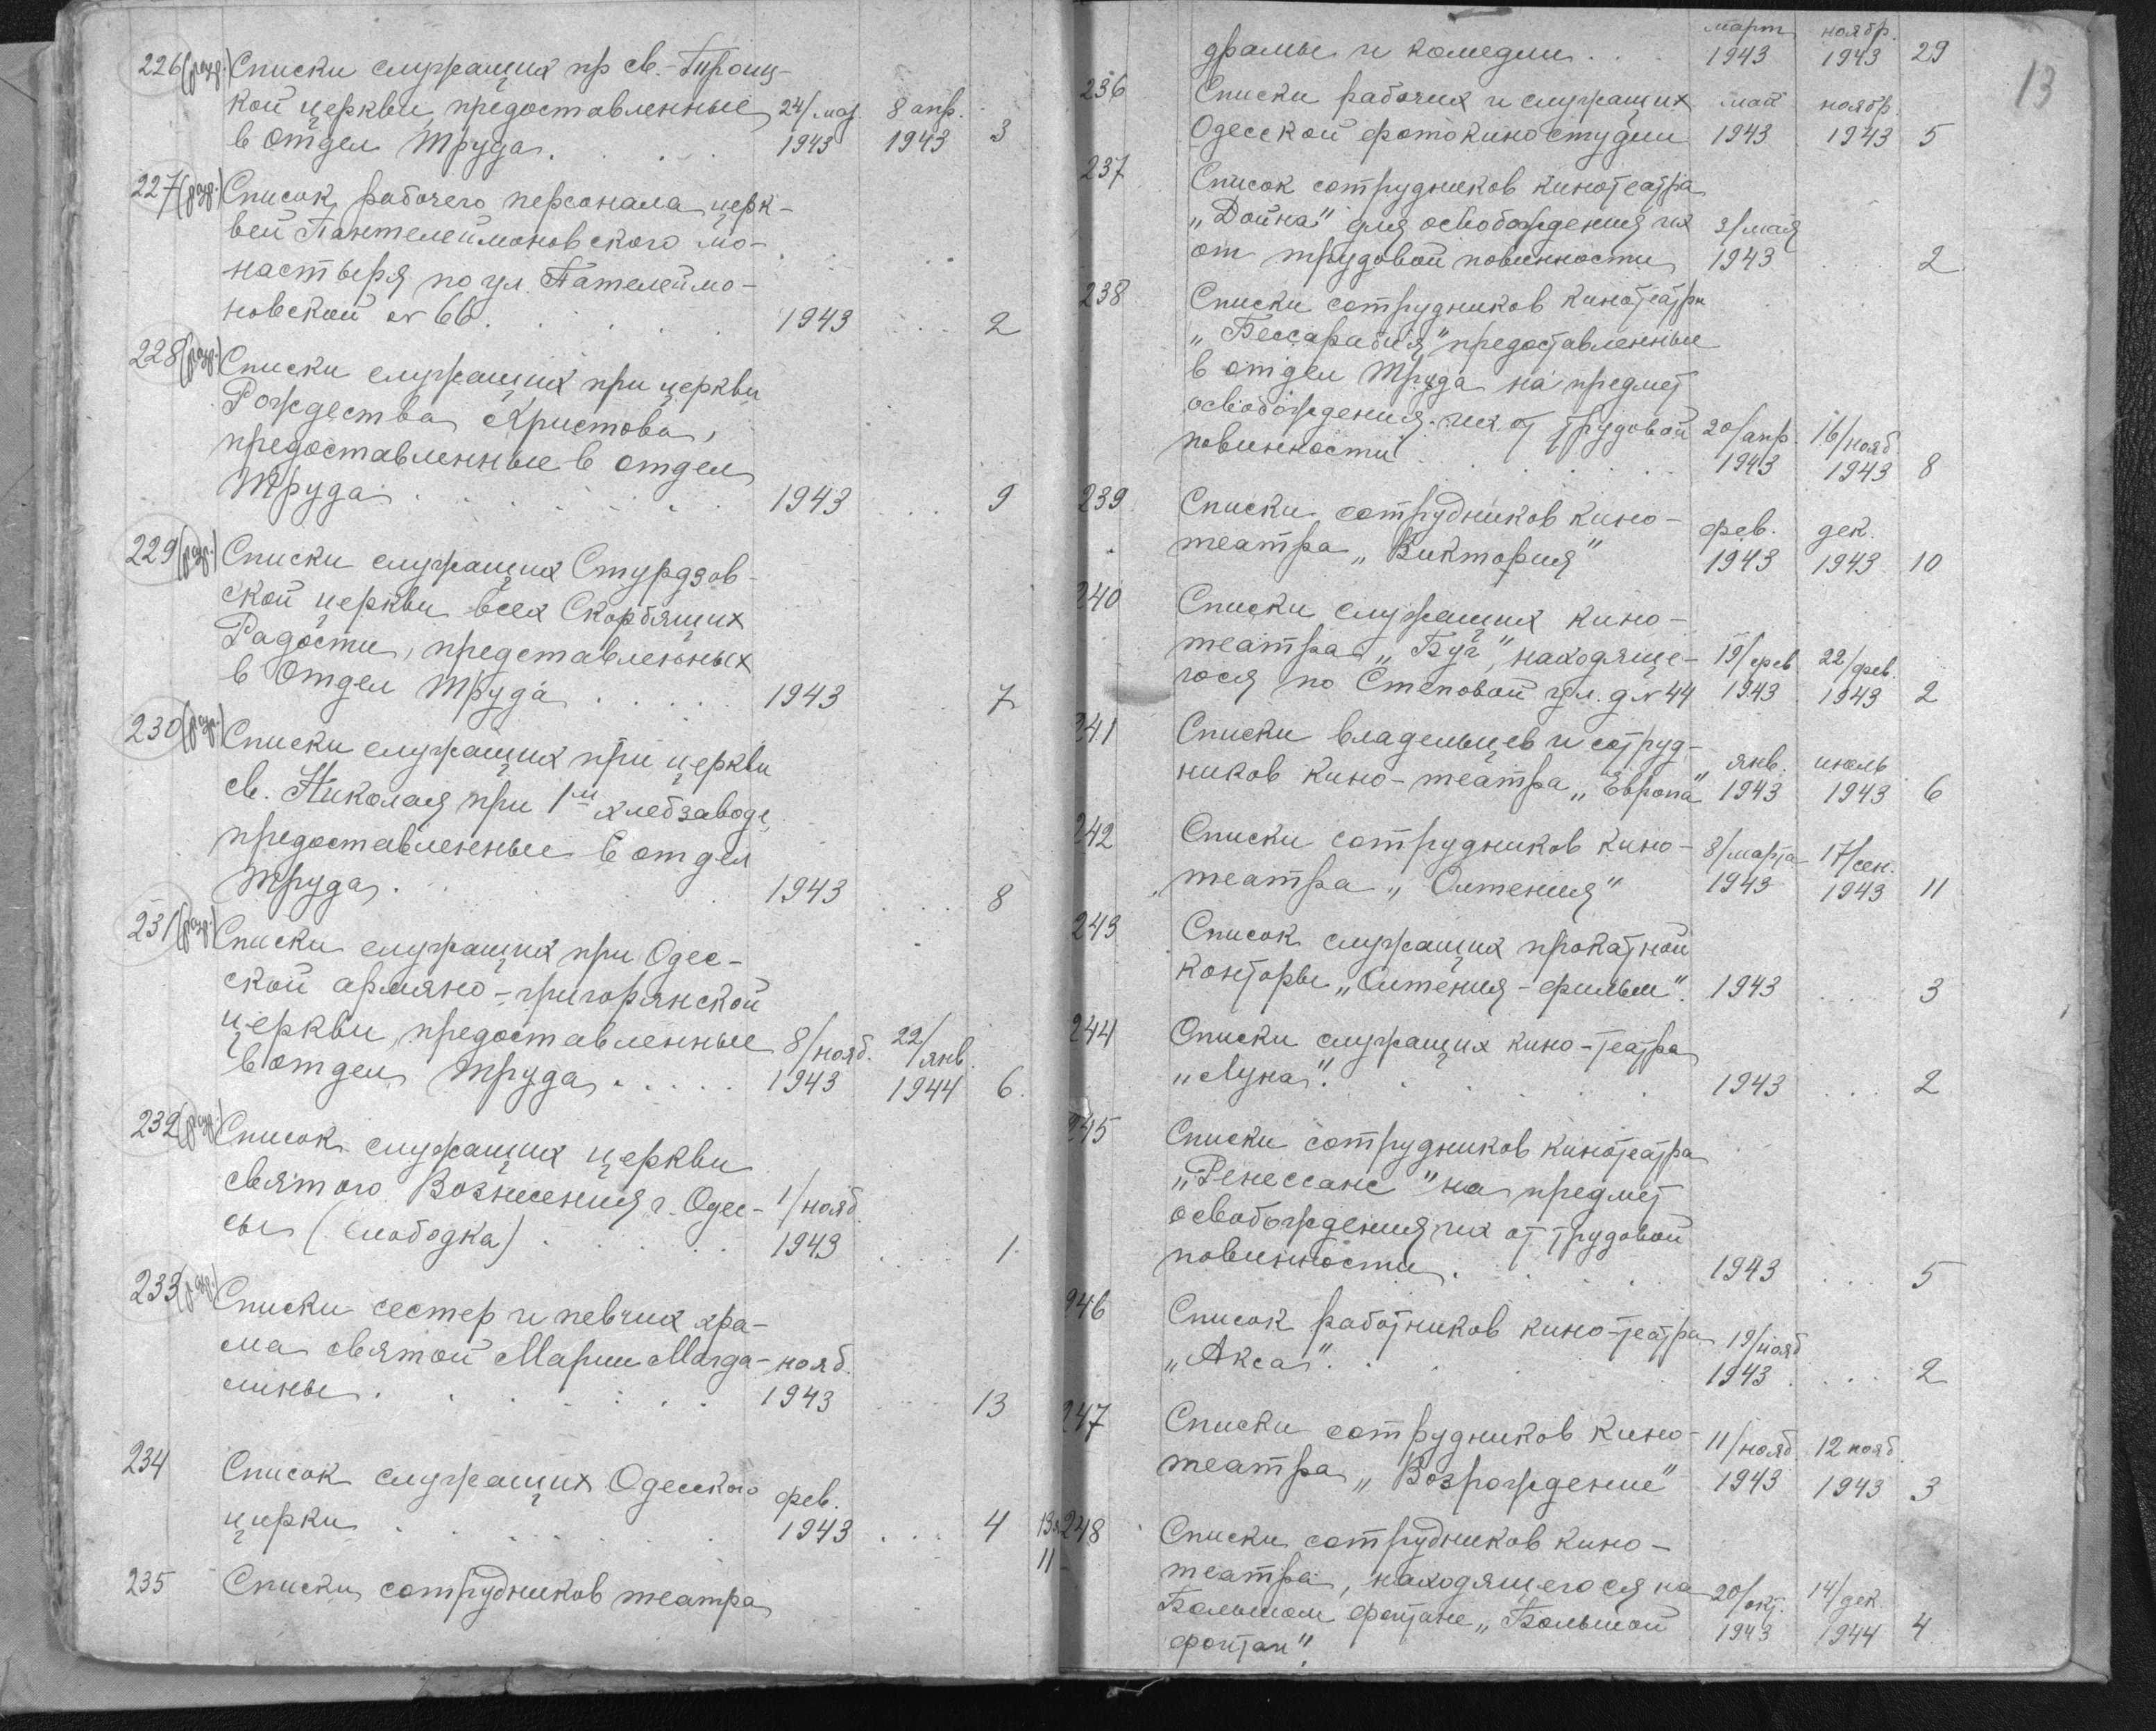 226 (разр.) Списки служащих пр св.-Троиц-
кой церкви, предоставленные 24/мар. 8 апр.
в отдел Труда. 1943 1943 3
227 (разр.) Список рабочего персонала церк-
вей Пантелеймоновского мо-
настыря по ул. Пателеймо-
новской № 66. 1943 2
228 (разр.) Списки служащих при церкви
Рождества Христова,
предоставленные в отдел
Труда 1943 9
229 (разр.) Списки служащих Стурдзов-
ской церкви всех Скорбящих
Радости, представленных
в Отдел Труда 1943 7
230 (разр.) Списки служащих при церкви
св. Николая при 1м хлебзаводе,
предоставленные в отдел
Труда. 1943 8
231 (разр.) Списки служащих при Одес-
ской армяно-григорянской
церкви, предоставленные 8/нояб. 22/янв.
в отдел Труда 1943 1944 6.
232 (разр.) Список служащих церкви
святого Вознесения г. Одес- 1/нояб.
сы (Слободка) 1943 1.
233 (разр.) Списки сестер и певчих хра-
ма святой Марии Магда- нояб.
лины. 1943 13
234 Список служащих Одесского фев.
цирка 1943 4
235 Списки сотрудников театра
13
март ноябр.
драмы и комедии 1943 1943 29
236 Списки рабочих и служащих май ноябр.
Одесской фотокиностудии 1943 1943 5
237 Список сотрудников кинотеатра
„Дойна" для освобождения их 3/мая
от трудовой повинности 1943 2
238 Списки сотрудников кинотеатра
„Бессарабия" предоставленные
в отдел Труда на предмет
освобождения их от трудовой 20/апр. 16/нояб.
повинности 1943 1943 8
239 Списки сотрудников кино- фев. дек.
театра „Виктория" 1943 1943 10
240 Списки служащих кино-
театра „Буг", находяще- 19/фев 22/фев.
гося по Степовой ул. д № 44 1943 1943 2
241 Списки владельцев и сотруд- янв. июль
ников кино-театра „Европа" 1943 1943 6
242 Списки сотрудников кино- 8/марта 17/сен.
театра „Олтения" 1943 1943 11
243 Список служащих прокатной
конторы „Олтения-фильм". 1943 3
244 Списки служащих кино-театра
„Луна". 1943 2
245 Списки сотрудников кинотеатра
„Ренессанс" на предмет
освобождения их от трудовой
повинности. 1943 5
246 Список работников кино-театра 19/нояб
„Акса". 1943 2
247 Списки сотрудников кино- 11/нояб. 12 нояб.
театра „Возрождение" 1943 1943 3
248 Списки сотрудников кино-
театра, находящегося на 20/окт. 14/дек.
Большом фонтане „Большой 1943 1944 4
фонтан".